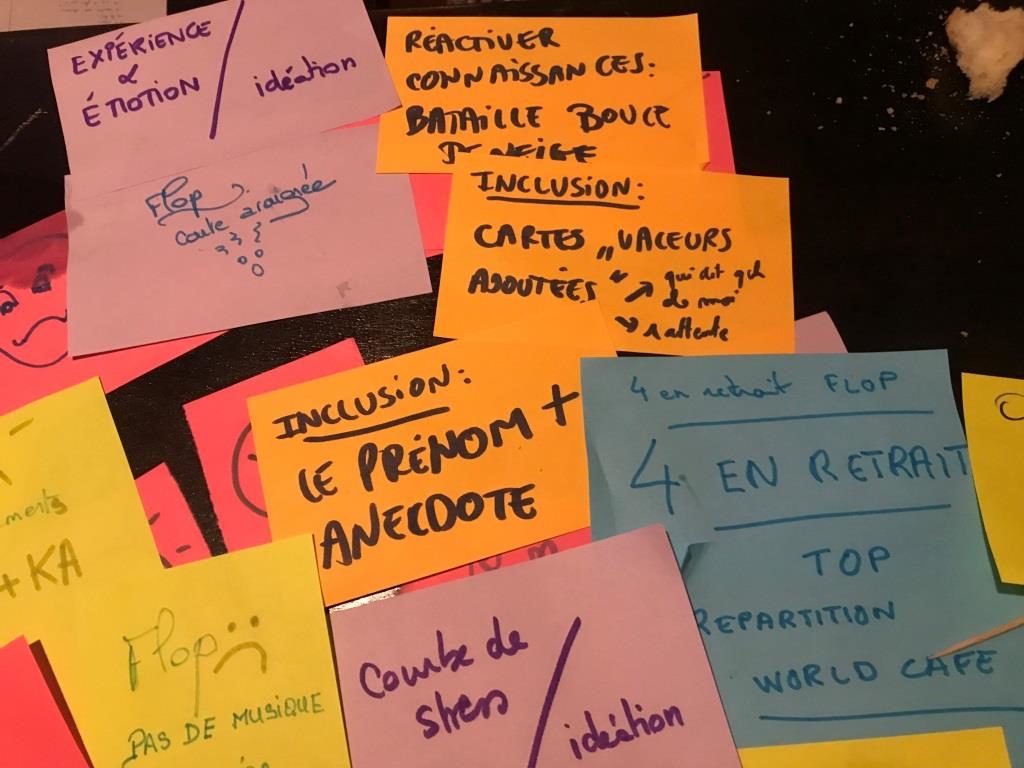 EXPÉRIENCE
&
ÉMOTION / idéation
RÉACTIVER
CONNAISSANCES:
BATAILLE BOULE
DE NEIGE
Flop
araignée
INCLUSION:
CARTES "VALEURS
AJOUTÉES" → qui dit qch
de moi
↘ 1 attente
INCLUSION:
LE PRÉNOM +
ANECDOTE
4 en retrait FLOP
4 EN RETRAIT
TOP
REPARTITION
WORLD CAFE
ments
+ KA
Flop :(
PAS DE MUSIQUE
Courbe de
stress / idéation